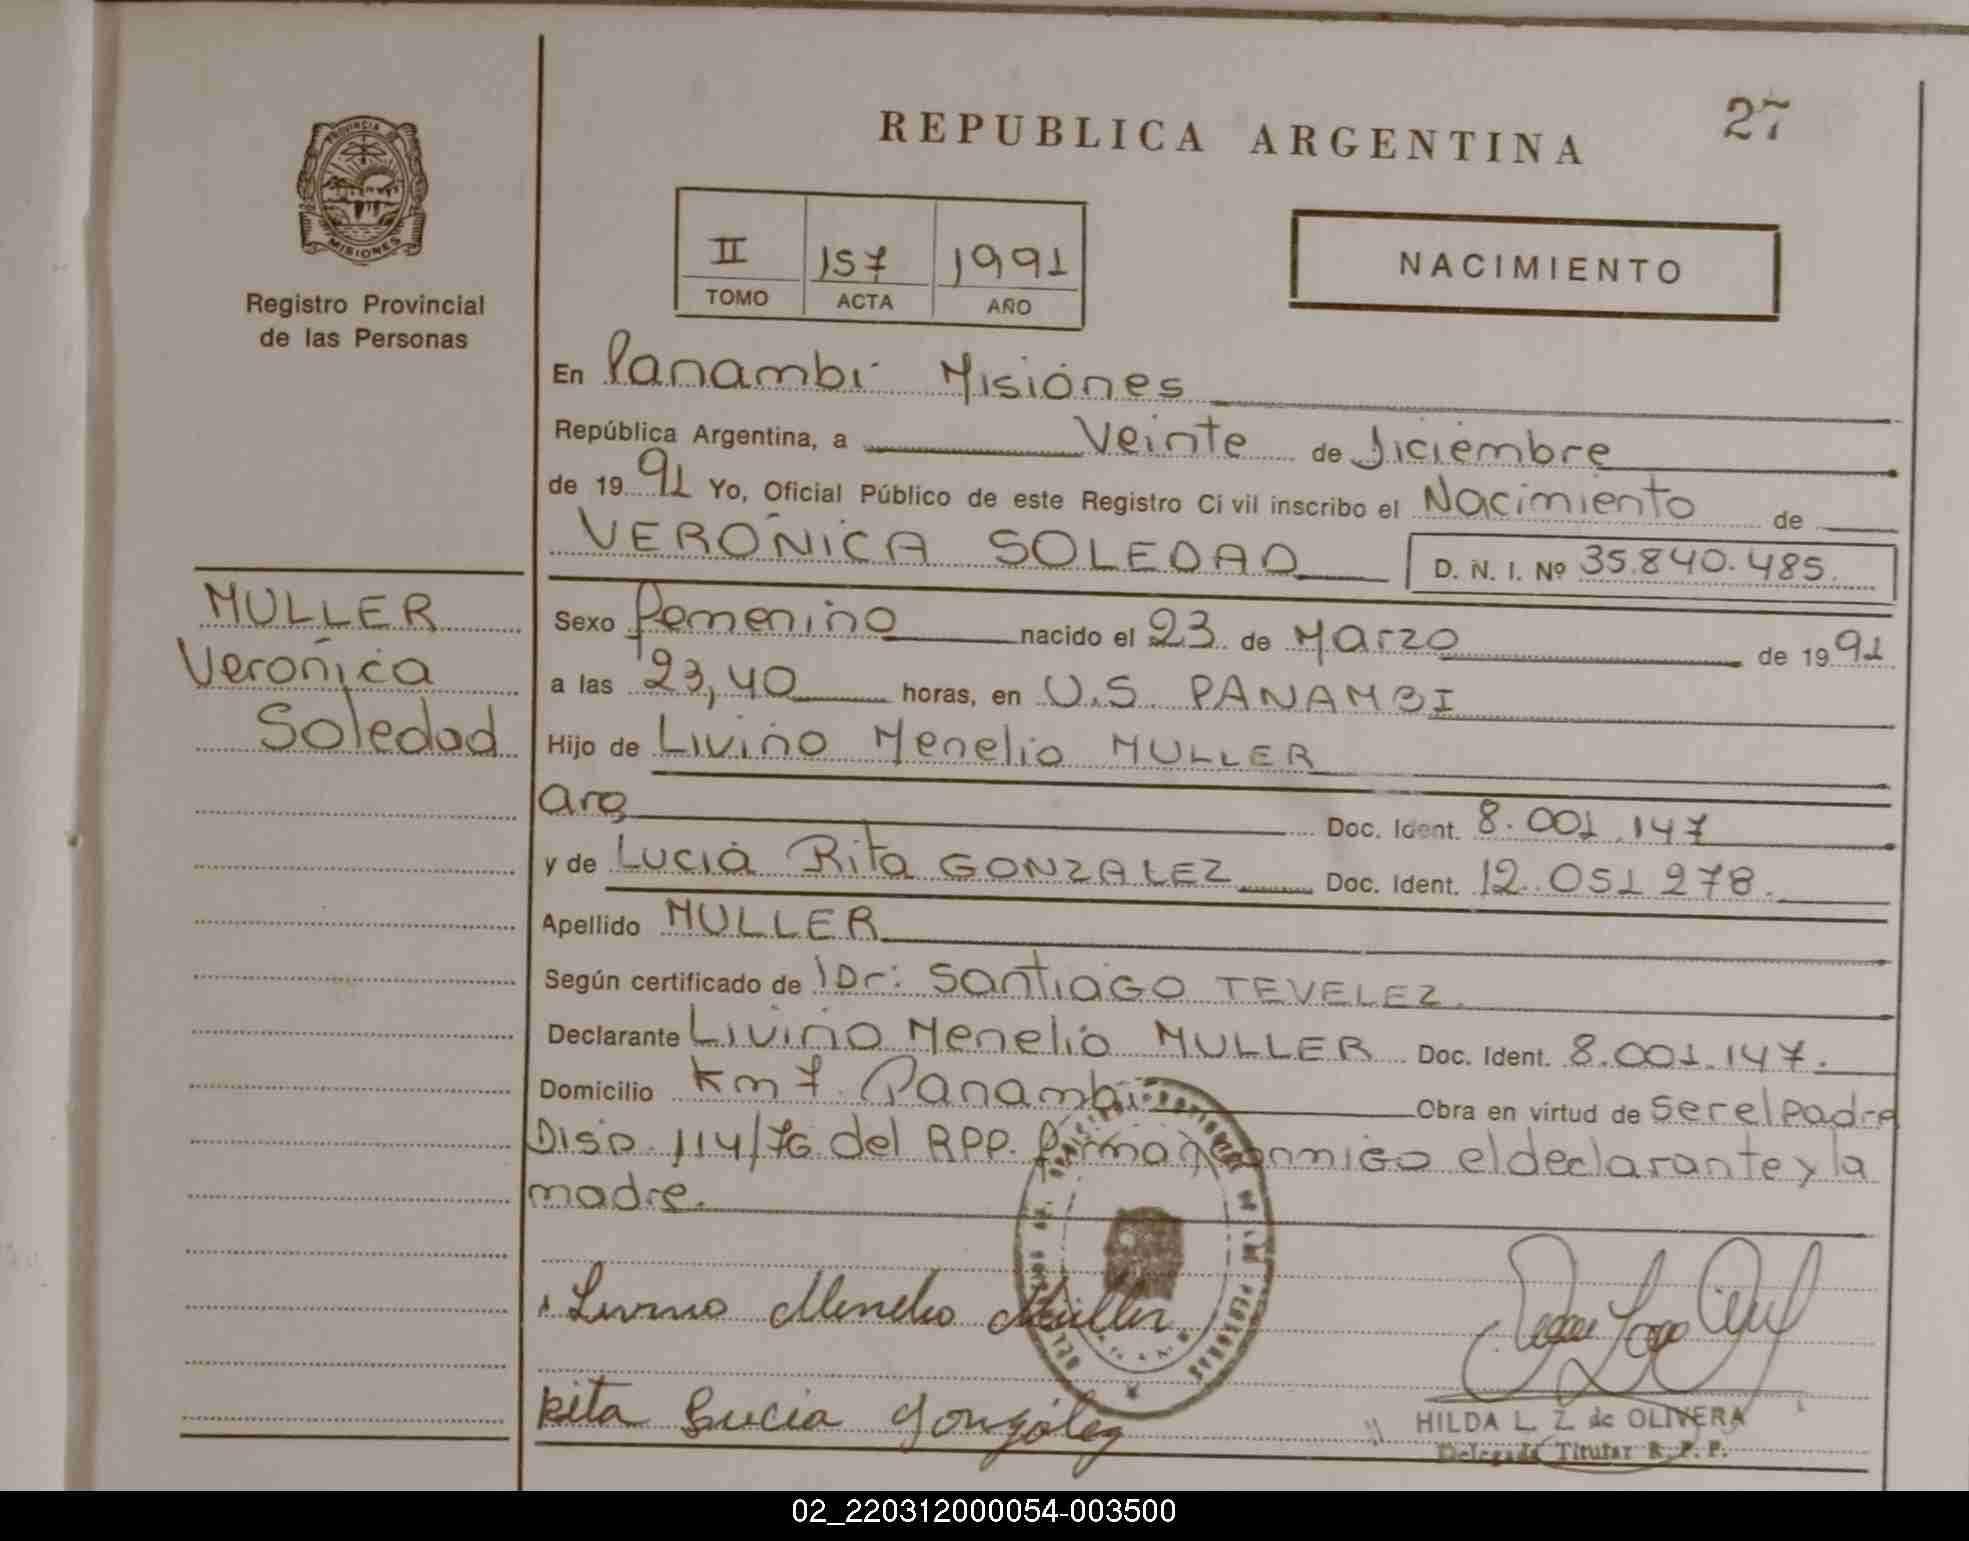 27
REPUBLICA ARGENTINA
PROVINCIA DE
MISIONES
Registro Provincial
de las Personas
II 157 1991
TOMO ACTA AÑO
NACIMIENTO
En Panambi Misiones
República Argentina, a Veinte de Diciembre
de 1991 Yo, Oficial Público de este Registro Civil inscribo el Nacimiento de
VERONICA SOLEDAD D. N. I. Nº 35.840.485.
MULLER
Veronica
Soledad
Sexo femenino nacido el 23 de Marzo de 1991
a las 23,40 horas, en U.S. PANAMBI
Hijo de Livino Menelio MULLER
Arg Doc. Ident. 8.001.147
y de Lucia Rita GONZALEZ Doc. Ident. 12.051.278.
Apellido MULLER
Según certificado de Dr: Santiago TEVELEZ.
Declarante Livino Menelio MULLER Doc. Ident. 8.001.147.
Domicilio Km 7. Panambi Obra en virtud de ser el padre
Disp. 114/76 del RPP. firman conmigo el declarante y la
madre.
Livino Menelio Müller
Rita Lucia González
HILDA L. Z. de OLIVERA
Delegada Titular R. P. P.
02_220312000054-003500